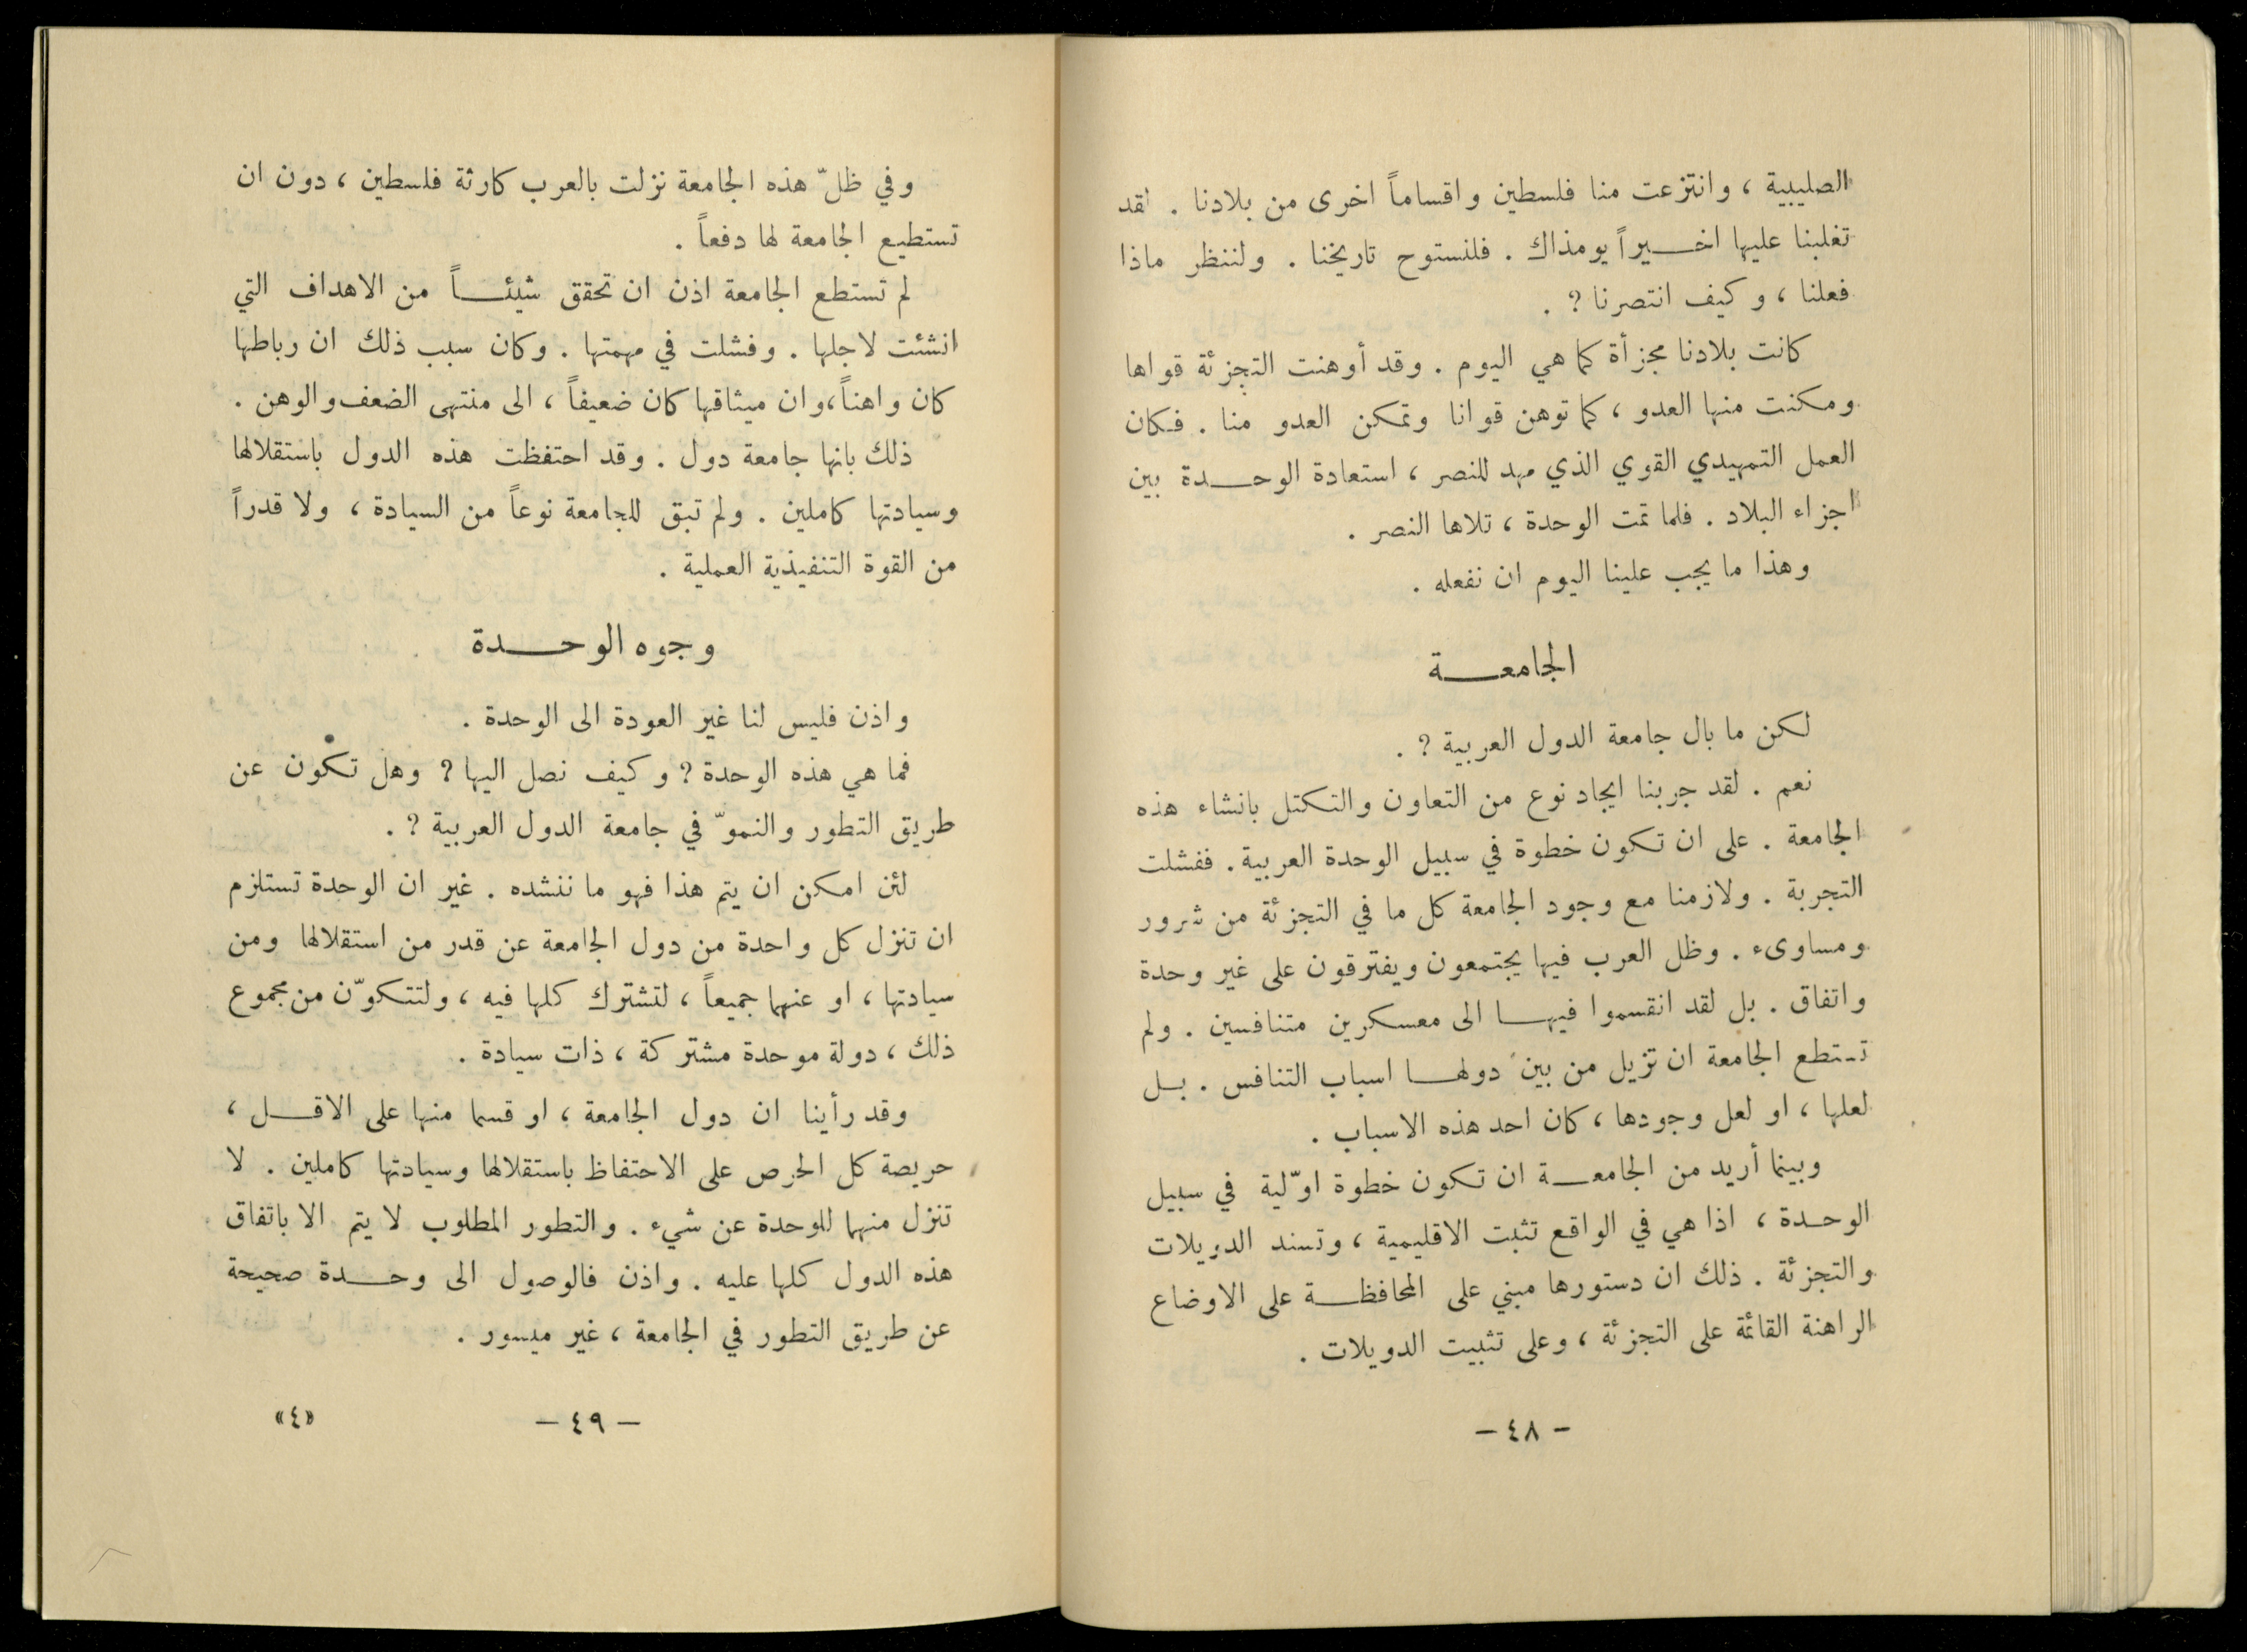 الصليبية ، وانتزعت منا فلسطين واقساماً اخرى من بلادنا . لقد
تغلبنا عليها اخــيراً يومذاك . فلنستوح تاريخنا . ولننظر ماذا
فعلنا ، وكيف انتصرنا ? .
كانت بلادنا مجزأة كما هي اليوم . وقد أوهنت التجزئة قواها
ومكنت منها العدو ، كما توهن قوانا وتمكن العدو منا . فكان
العمل التمهيدي القوي الذي مهد للنصر ، استعادة الوحــدة بين
اجزاء البلاد . فلما تمت الوحدة ، تلاها النصر .
وهذا ما يجب علينا اليوم ان نفعله .
الجامعــة
لكن ما بال جامعة الدول العربية ? .
نعم . لقد جربنا ايجاد نوع من التعاون والتكتل بانشاء هذه
الجامعة . على ان تكون خطوة في سبيل الوحدة العربية . ففشلت
التجربة . ولازمنا مع وجود الجامعة كل ما في التجزئة من شرور
ومساوىء . وظل العرب فيها يجتمعون ويفترقون على غير وحدة
واتفاق . بل لقد انقسموا فيهــا الى معسكرين متنافسين . ولم
تستطع الجامعة ان تزيل من بين دولهــا اسباب التنافس . بــل
لعلها ، او لعل وجودها ، كان احد هذه الاسباب .
وبينما أريد من الجامعــة ان تكون خطوة اوّلية في سبيل
الوحــدة ، اذا هي في الواقع تثبت الاقليمية ، وتسند الدويلات
والتجزئة . ذلك ان دستورها مبني على المحافظــة على الاوضاع
الراهنة القائمة على التجزئة ، وعلى تثبيت الدويلات .
– ٤٨ –
وفي ظلّ هذه الجامعة نزلت بالعرب كارثة فلسطين ، دون ان
تستطيع الجامعة لها دفعاً .
لم تستطع الجامعة اذن ان تحقق شيئــاً من الاهداف التي
انشئت لاجلها . وفشلت في مهمتها . وكان سبب ذلك ان رباطها
كان واهناً، وان ميثاقها كان ضعيفاً ، الى منتهى الضعف والوهن .
ذلك بانها جامعة دول . وقد احتفظت هذه الدول باستقلالها
وسيادتها كاملين . ولم تبق للجامعة نوعاً من السيادة ، ولا قدراً
من القوة التنفيذية العملية .
وجوه الوحــدة
واذن فليس لنا غير العودة الى الوحدة .
فما هي هذه الوحدة ? وكيف نصل اليها ? وهل تكون عن
طريق التطور والنموّ في جامعة الدول العربية ? .
لئن امكن ان يتم هذا فهو ما ننشده . غير ان الوحدة تستلزم
ان تنزل كل واحدة من دول الجامعة عن قدر من استقلالها ومن
سيادتها ، او عنهما جميعاً ، لتشترك كلها فيه ، ولتتكوّن من مجموع
ذلك ، دولة موحدة مشتركة ، ذات سيادة .
وقد رأينا ان دول الجامعة ، او قسما منها على الاقــل ،
حريصة كل الحرص على الاحتفاظ باستقلالها وسيادتها كاملين . لا
تنزل منهما للوحدة عن شيء . والتطور المطلوب لا يتم الا باتفاق
هذه الدول كلها عليه . واذن فالوصول الى وحــدة صحيحة
عن طريق التطور في الجامعة ، غير ميسور .
– ٤٩ –
«٤»